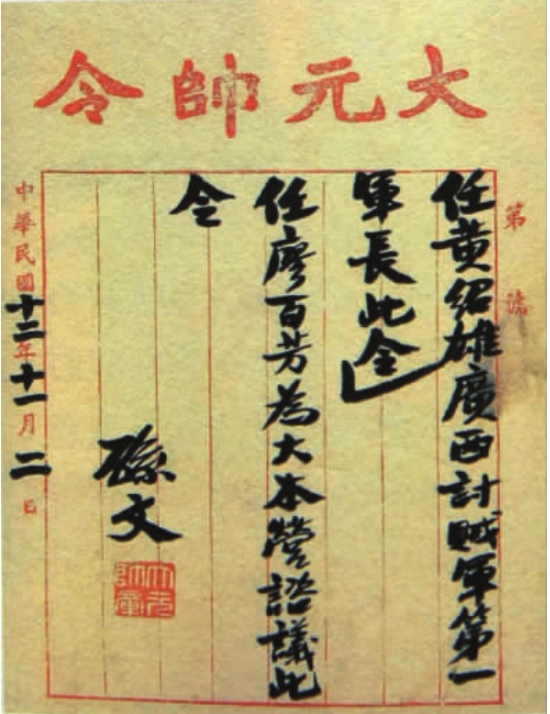 大元帥令
第　號
任黃紹雄廣西討賊軍第一
軍長此令
任廖百芳為大本營諮議此
令
孫文
大元帥章
中華民國十二年十一月二日